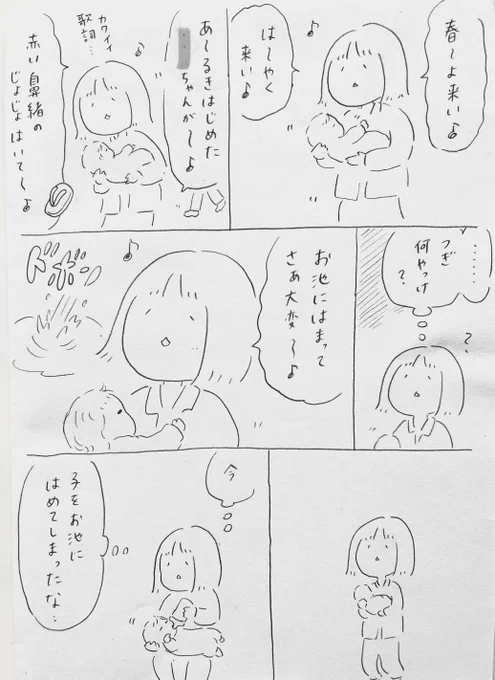 春〜よ来い♪
は〜やく
来い♪
あ〜るきはじめた
ちゃんが〜♪
カワイイ
歌詞…
赤い鼻緒の
じょじょはいて〜♪
………
つぎ
何やっけ
?
?
お池にはまって
さあ大変〜♪
ドボーン
今
子をお池に
はめてしまったな…